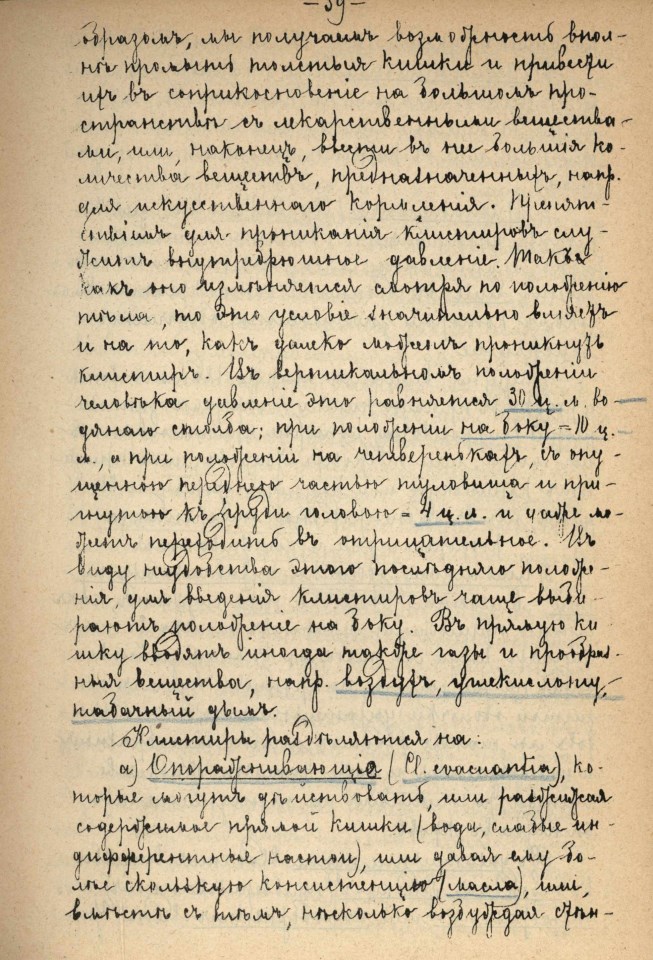 — 39 —
образомъ, мы получаемъ возможность впол-
нѣ промыть толстыя кишки и привести
ихъ въ соприкосновеніе на большомъ про-
странствѣ съ лекарственными вещества-
ми, или, наконецъ, ввести въ нее большія ко-
личества веществъ, предназначенныхъ, напр.
для искусственнаго кормленія. Препят-
ствіемъ для проникания клистировъ слу-
житъ внутрибрюшное давленіе. Такъ
какъ оно измѣняется смотря по положенію
тѣла, то это условіе значительно вліяетъ
и на то, какъ далеко можетъ проникнуть
клистиръ. Въ вертикальномъ положеніи
человѣка давленіе это равняется 30 ц. м. во-
дянаго столба; при положеніи на боку = 10 ц.
м., а при положеніи на четверенькахъ, съ опу-
щенною переднею частью туловища и при-
гнутою къ груди головою = 4 ц. м. и даже мо-
жетъ переходить въ отрицательное. Въ
виду неудобства этого послѣдняго положе-
нія, для введенія клистировъ чаще выби-
раютъ положеніе на боку. Въ прямую ки-
шку вводятъ иногда также газы и прообраз-
ныя вещества, напр. воздухъ, углекислоту,
табачный дымъ.
Клистиры раздѣляются на:
а) Опоражнивающіе (Cl. evacuantia), ко-
торые могутъ дѣйствовать, или разжижая
содержимое прямой кишки (вода, слабые ин-
дифферентные настои), или давая ему бо-
лѣе скользкую консистенцію (масла), или,
вмѣстѣ съ тѣмъ, нѣсколько возбуждая стѣн-